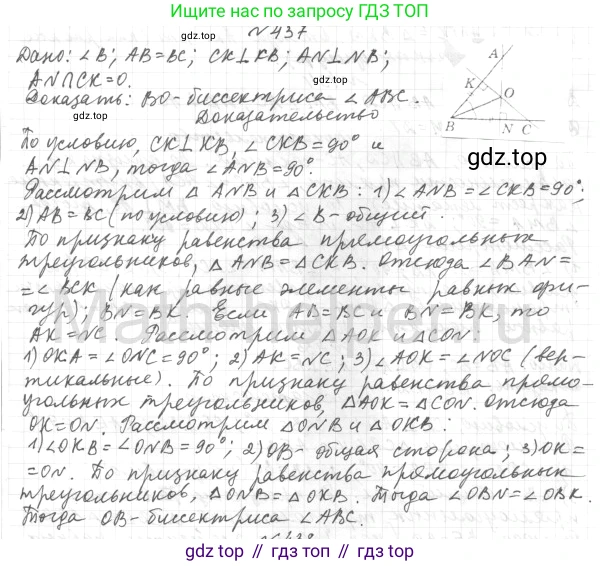 Ищите нас по запросу ГДЗ ТОП
№437
Дано: ∠B; AB=BC; CK⊥KB; AN⊥NB;
AN∩CK=O.
Доказать: BO-биссектриса ∠ABC.
Доказательство
A
K
O
B
N C
gdz.top
По условию, CK⊥KB, ∠CKB=90° и
AN⊥NB, тогда ∠ANB=90°.
Рассмотрим △ANB и △CKB: 1) ∠ANB=∠CKB=90°;
2) AB=BC (по условию); 3) ∠B-общий.
По признаку равенства прямоугольных
треугольников, △ANB=△CKB. Отсюда ∠BAN=
=∠BCK (как равные элементы равных фи-
гур); BN=BK. Если AB=BC и BN=BK, то
AK=NC. Рассмотрим △AOK и △CON.
1) OKA=∠ONC=90°; 2) AK=NC; 3) ∠AOK=∠NOC (вер-
тикальные). По признаку равенства прямо-
угольных треугольников, △AOK=△CON. Отсюда
OK=ON. Рассмотрим △ONB и △OKB:
1) ∠OKB=∠ONB=90°; 2) OB-общая сторона; 3) OK=
=ON. По признаку равенства прямоугольных
треугольников, △ONB=△OKB. Тогда ∠OBN=∠OBK.
Тогда OB-биссектриса ∠ABC.
Math-helper.ru
gdz.top // gdz.top // gdz.top